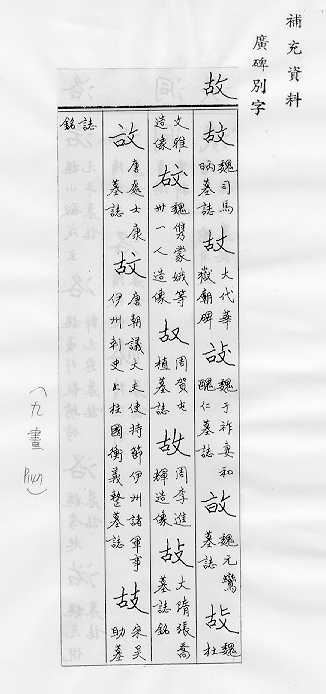 補充資料
廣碑別字
故
故 魏司馬昞墓誌 故 大代華嶽廟碑 故 魏于祚妻和醜仁墓誌 故 魏元鸞墓誌 故 魏杜
文雅造像 故 魏儁蒙娥等卅一人造像 故 周賀屯植墓誌 故 周李進輝造像 故 大隋張喬墓誌銘
故 唐處士康墓誌 故 唐朝議大夫使持節伊州諸軍事伊州刺史上柱國衡義整墓誌 故 宋吳助墓
誌銘
(九畫